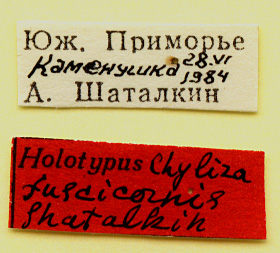 Юж. Приморье
Каменушка 28.VI
1984
А. Шаталкин
Holotypus Chyliza
fuscicornis
Shatalkin